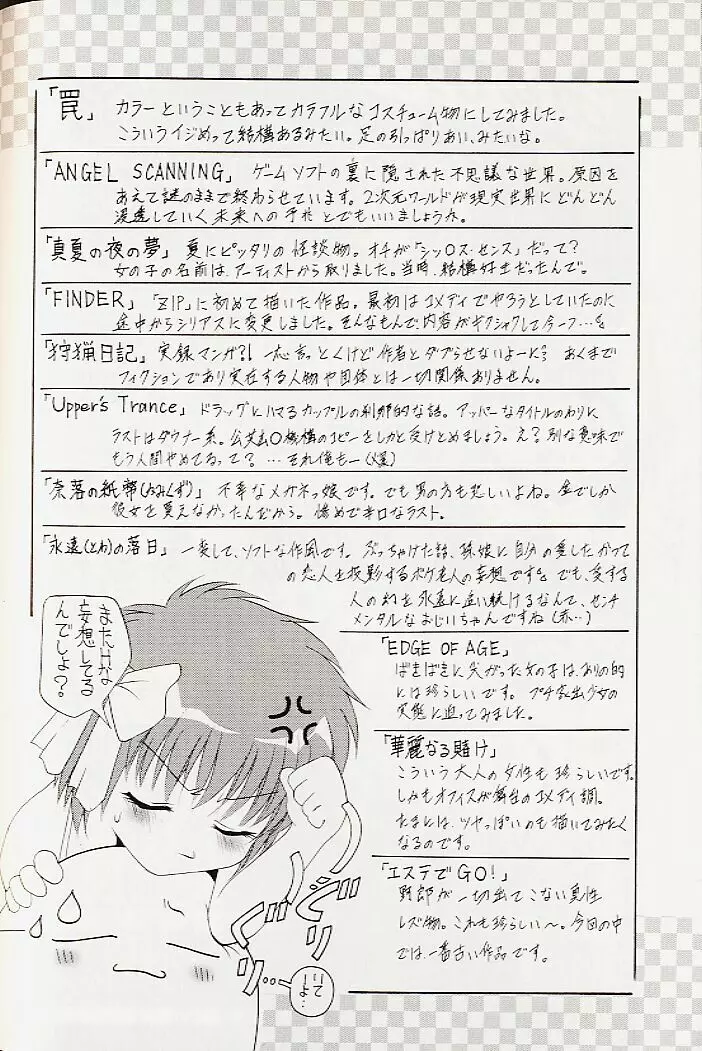 「罠」 カラーということもあってカラフルなコスチューム物にしてみました。
こういうイジめって結構あるみたい。足の引っぱりあい、みたいな。
「ANGEL SCANNING」 ゲームソフトの裏に隠された不思議な世界。原因を
あえて謎のままで終わらせています。2次元ワールドが現実世界にどんどん
浸透していく未来への とでもいいましょうか。
「真夏の夜の夢」 夏にピッタリの怪談物。オチが「シッ○ス・センス」だって?
女の子の名前は、アーティストから取りました。当時、結構好きだったんで。
「FINDER」 「ZIP」に初めて描いた作品。最初はコメディでやろうとしていたのに
途中からシリアスに変更しました。そんなもんで、内容がギクシャクして
「狩猟日記」 実録マンガ?! 一応言っとくけど作者とダブらせないよーに。 あくまで
フィクションであり実在する人物や団体とは一切関係ありません。
「Upper's Trance」 ドラッグにハマるカップルの刹那的な話。アッパーなタイトルのわりに
ラストはダウナー系。公共広○機構のコピーをしかと受けとめましょう。え?別な意味で
もう人間やめてるって? …それ俺もー(爆)
「奈落の紙幣(おみくず)」 不幸なメガネっ娘です。でも男の方も悲しいよね。金でしか
彼女を買えなかったんだから。 惨めで辛口なラスト。
「永遠(とわ)の落日」 一変して、ソフトな作風です。 ぶっちゃけた話、孫娘に自分の愛したかつて
の恋人を投影するボケ老人の妄想です。 でも、愛する
人の幻を永遠に追い続けるなんて、センチ
メンタルなおじいちゃんですね(赤…)
「EDGE OF AGE」
ばきばきに尖がった女の子は、ありの的
には珍らしいです。 プチ家出少女の
実態に迫ってみました。
「華麗なる賭け」
こういう大人の女性も珍らしいです。
しかもオフィスが舞台のコメディ調。
たまには、ツヤっぽいのも描いてみたく
なるのです。
「エステでGO!」
野郎が一切出てこない異性
レズ物。これも珍らしい〜。今回の中
では、一番古い作品です。
またHな
妄想してる
んでしょ?
グリグリ…